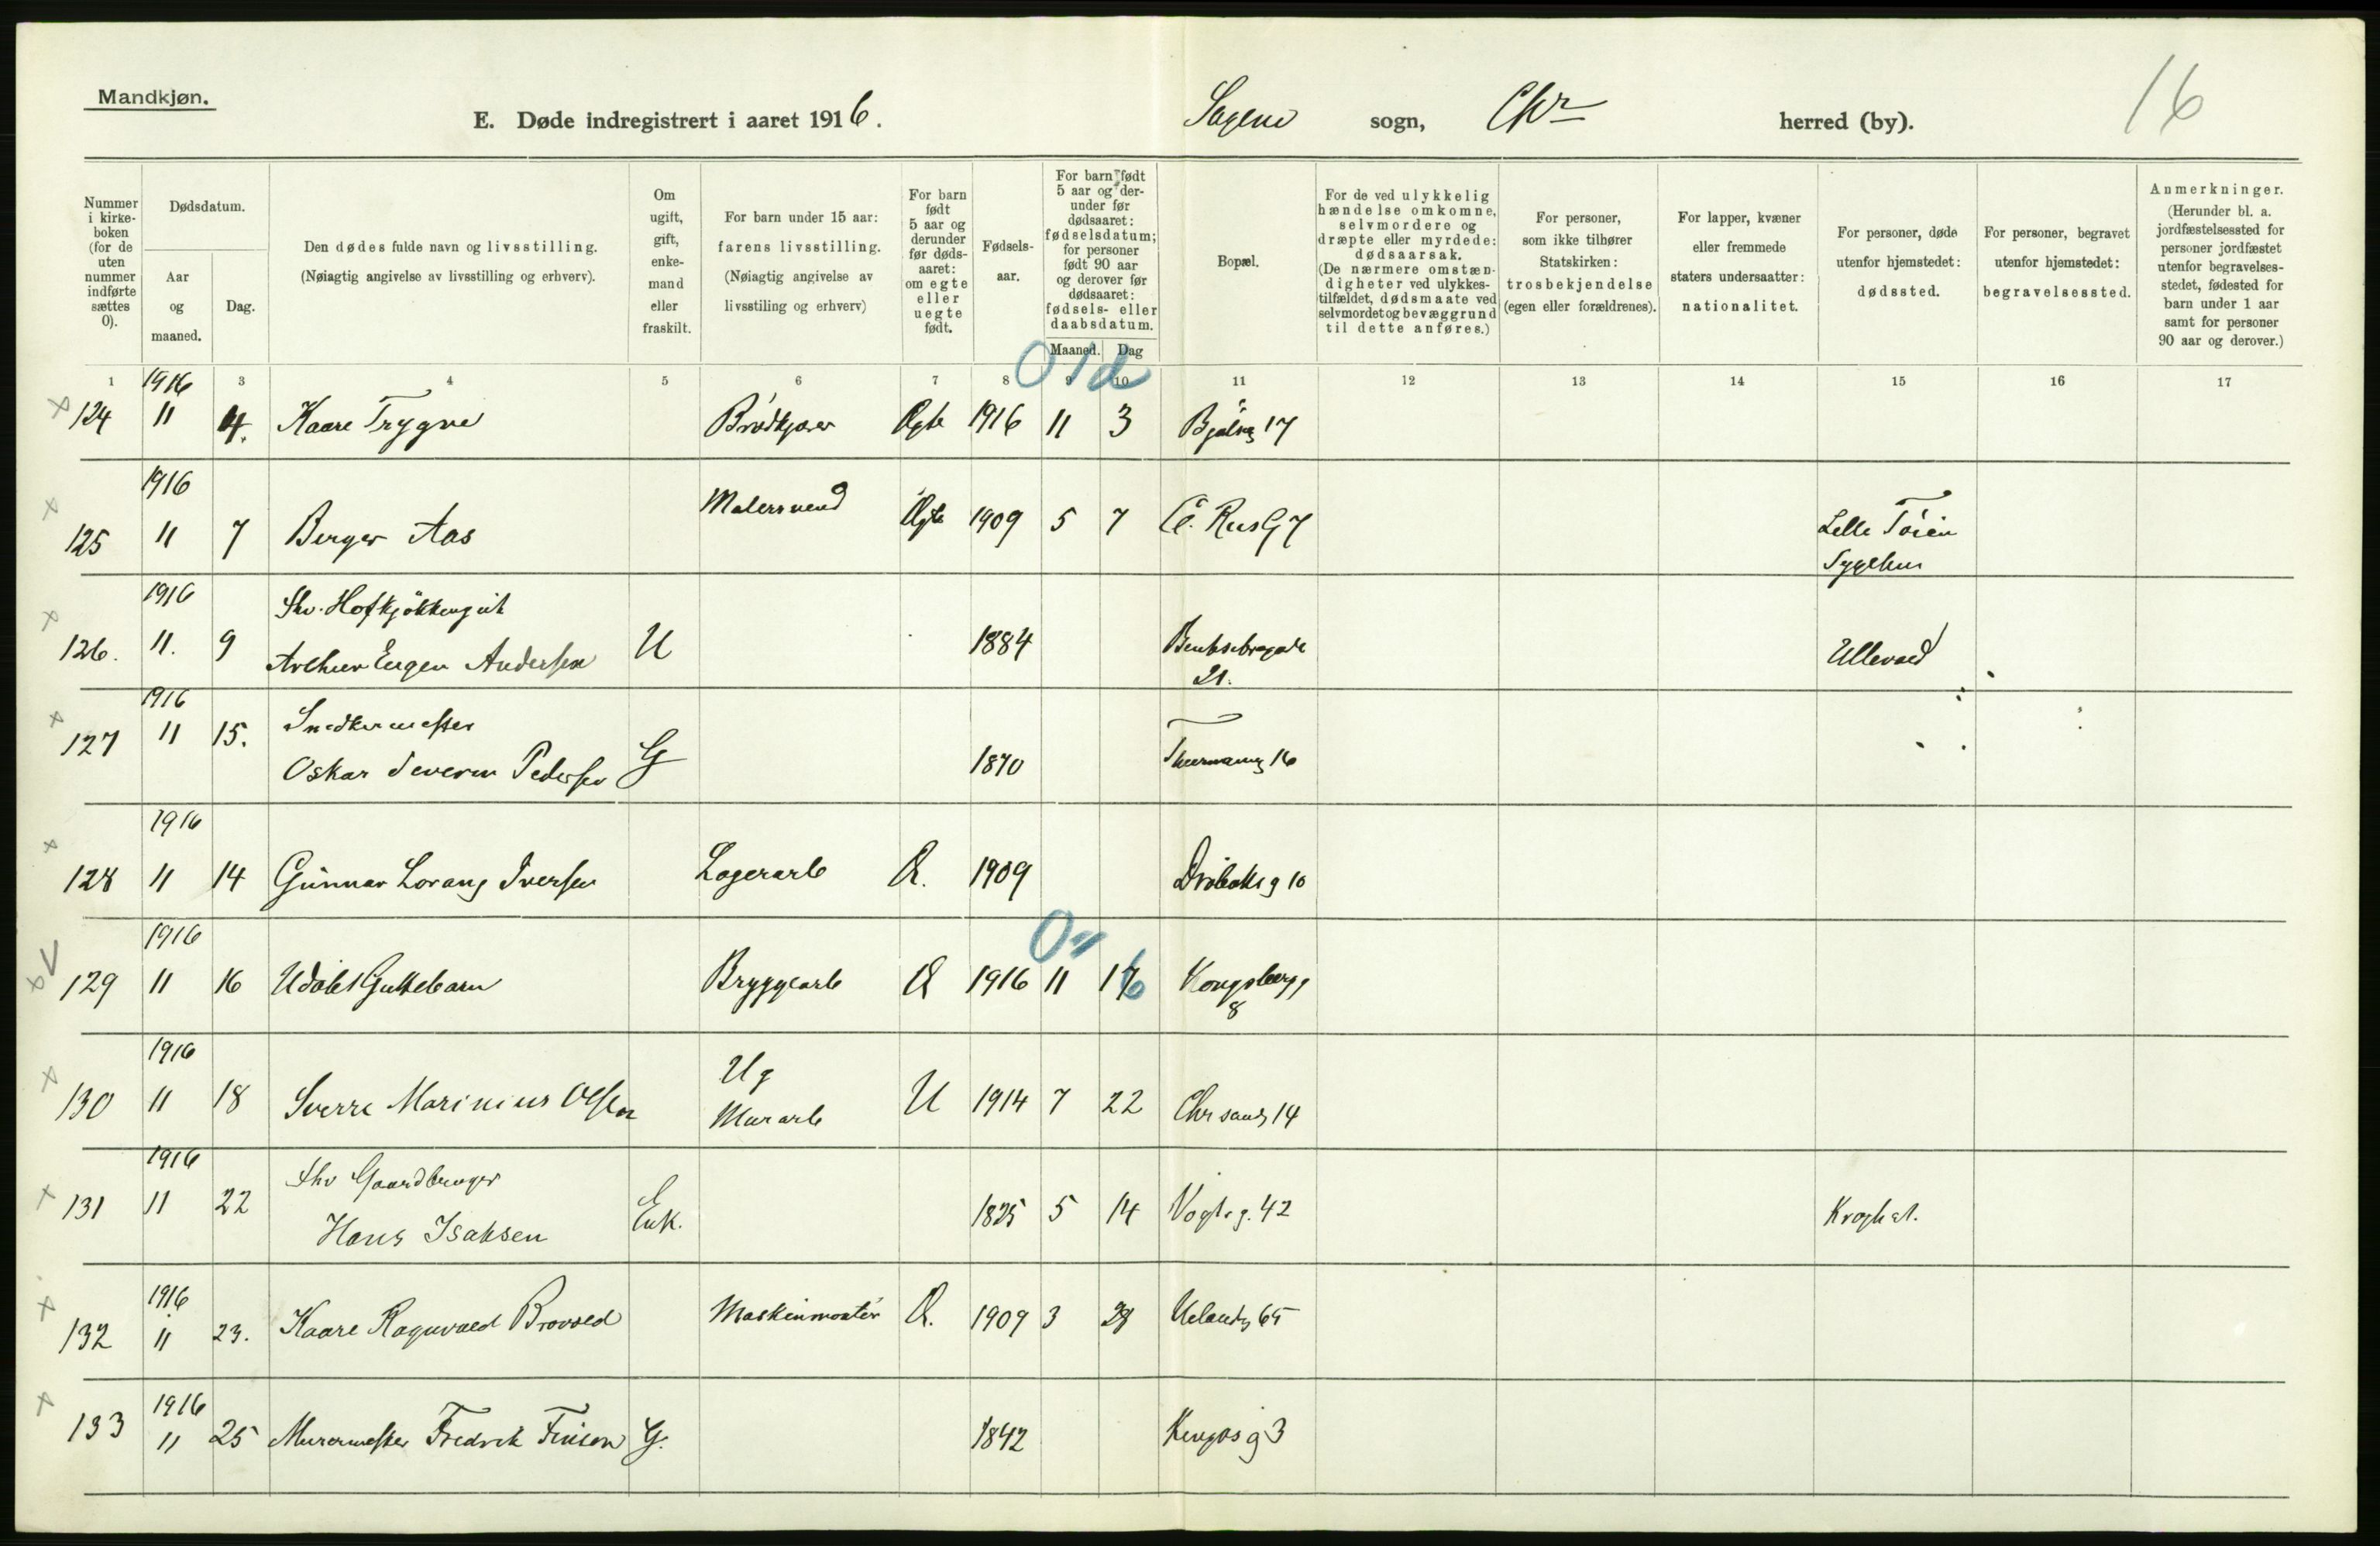 Mandkjøn.
E. Døde indregistrert i aaret 1916.
Sagene sogn, Chr herred (by).
16
Nummer i kirkeboken (for de uten nummer indførte sættes 0).
Dødsdatum.
Aar og maaned.
Dag.
Den dødes fulde navn og livsstilling.
(Nøiagtig angivelse av livsstilling og erhverv).
Om ugift, gift, enkemand eller fraskilt.
For barn under 15 aar: farens livsstilling.
(Nøiagtig angivelse av livsstiling og erhverv)
For barn født 5 aar og derunder før dødsaaret: om egte eller uegte født.
Fødselsaar.
For barn født 5 aar og derunder før dødsaaret: fødselsdatum; for personer født 90 aar og derover før dødsaaret: fødsels- eller daabsdatum.
Maaned. Dag
Bopæl.
For de ved ulykkelig hændelse omkomne, selvmordere og dræpte eller myrdede: dødsaarsak.
(De nærmere omstændigheter ved ulykkestilfældet, dødsmaate ved selvmordet og bevæggrund til dette anføres.)
For personer, som ikke tilhører Statskirken: trosbekjendelse (egen eller forældrenes).
For lapper, kvæner eller fremmede staters undersaatter: nationalitet.
For personer, døde utenfor hjemstedet: dødssted.
For personer, begravet utenfor hjemstedet: begravelsessted.
Anmerkninger.
(Herunder bl. a. jordfæstelsessted for personer jordfæstet utenfor begravelsesstedet, fødested for barn under 1 aar samt for personer 90 aar og derover.)
1 3 4 5 6 7 8 9 10 11 12 13 14 15 16 17
0 1 d
1916
124 11 4. Kaare Trygve Brødkjører Egte 1916 11 3 Bjølsg 17
1916
125 11 7 Berger Aas Malersvend Egte 1909 5 7 C. Rus G 7 Lille Tøien
Sygehus
1916
Fhv. Hofkjøkkengut
126. 11. 9 Arthur Eugen Andersen U 1884 Bentsebrogade
21.
Ullevaal
1916
Snedkermester
127 11 15. Oskar Severin Pedersen G 1870 Thurmanng 16
1916
128 11 14 Gunnar Lorang Iversen Lagerarb E. 1909 Drøbaksg 10
1916
129 11 16 Udøbt Guttebarn Bryggearb E 1916 11 16 Kongsbergg
8
1916
Ug
130 11 18 Sverre Marinius Olsen Murarb U 1914 7 22 Chrsandg 14
1916
Fhv Gaardbruger
131 11 22 Hans Isaksen Enk. 1825 5 14 Vogtsg. 42 Kroghst.
1916
132 11 23. Kaare Ragnvald Brovold Maskinmontør E. 1909 3 28 Uelandsg 65
1916
133 11 25 Murermester Fredrik Finson G. 1842 Kingosg 3